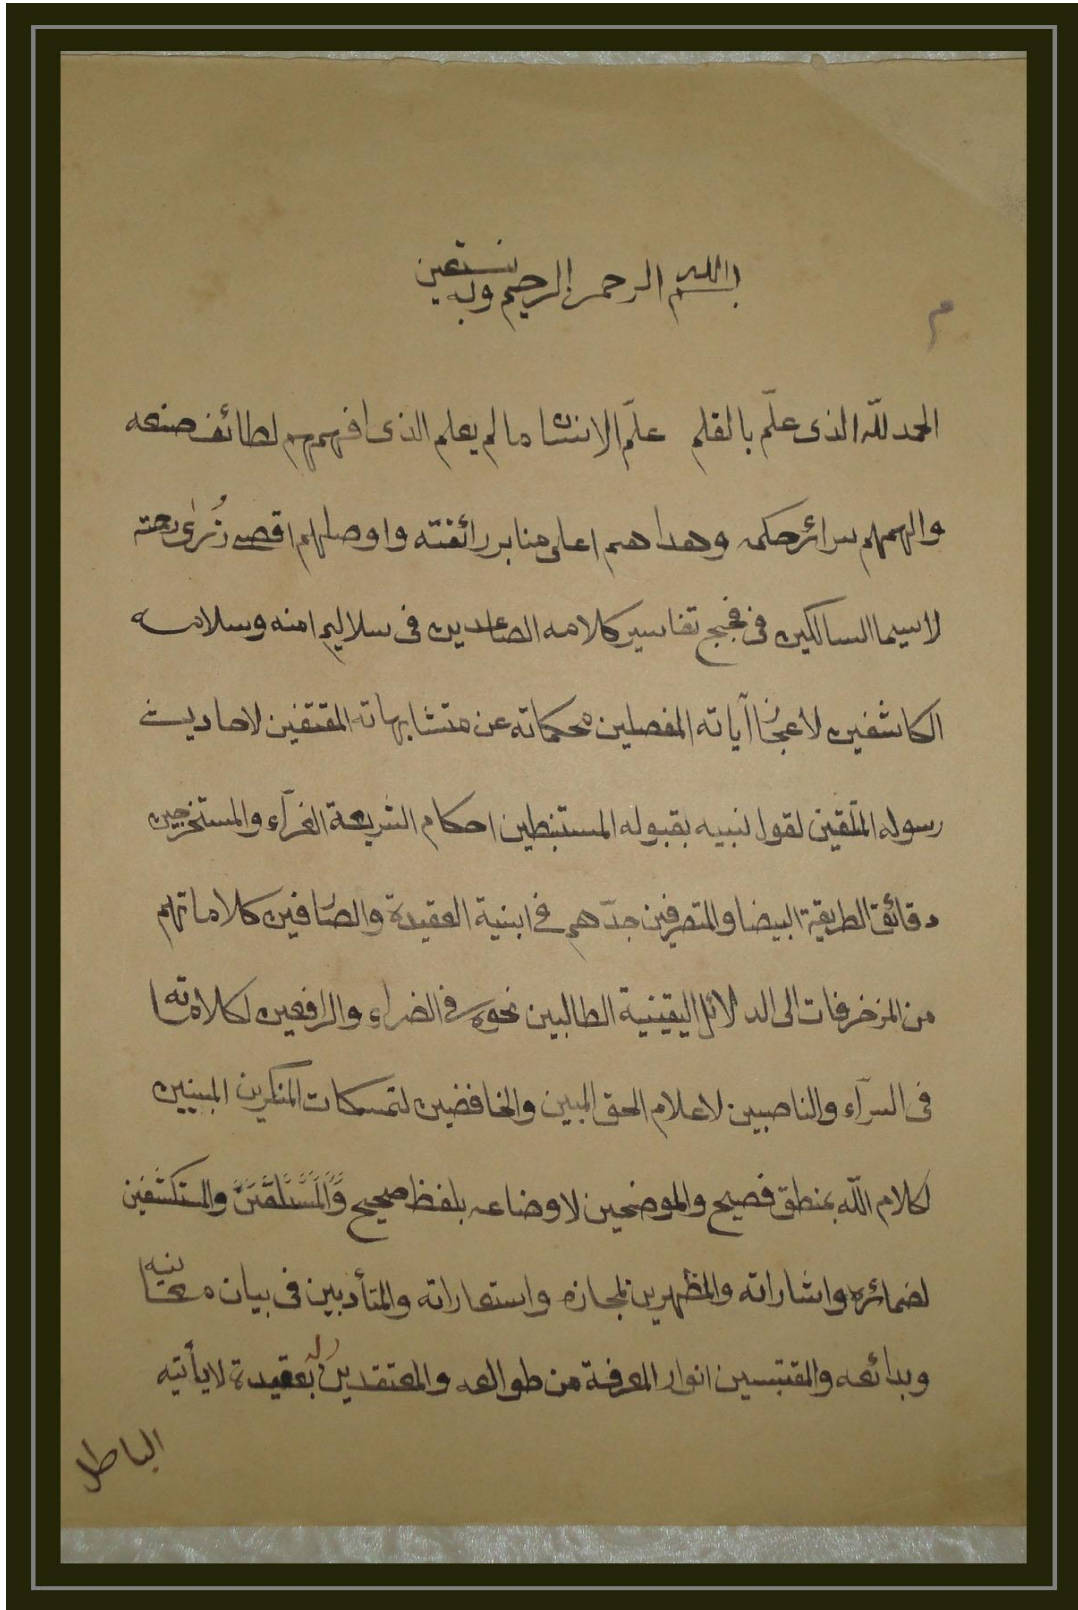 بسم الله الرحمن الرحيم وبه نستعين
م
الحمد للّه الذى علّم بالقلم علّم الانسان ما لم يعلم الذى افهمهم لطائف صنعه
والهمهم سرائر حكمه وهداهم اعلى منابر رائفته واوصلهم اقصى ذُرىٰ رحمته
لاسيما السالكين فى فجج تفاسير كلامه الصاعدين فى سلاليم امنه وسلامه
الكاشفين لأعجاز آياته المفصلين محكماته عن متشابهاته المقتفين لاحاديث
رسوله المتلّقين لقول نبيه بقبوله المستنبطين احكام الشريعة الغرّآء والمستخرجين
دقائق الطريقة البيضا والمتصرفين جدّهم فى ابنية العقيدة والصّافين كلاماتهم
من المزخرفات الى الدلائل اليقينية الطالبين نحوه فى الضراء والرافعين لكلاماته
فى السرّآء والناصبين لاعلام الحق المبين والخافضين لتمسكات المنكرين المبينين
لكلام اللّه بمنطق فصيح والموضحين لاوضاعه بلفظ صحيح والمستكشفين
لضمائره واشاراته والمظهرين لمجازه واستعاراته والمتأدبين فى بيان معانيه
وبدائعه والمقتبسين انوار المعرفة من طوالعه والمعتقدين له بعقيدة لا يأتيه
الباطل